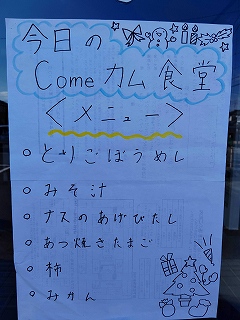 今日の
Comeカム食堂
<メニュー>
○ とりごぼうめし
○ みそ汁
○ ナスのあげびたし
○ あつ焼きたまご
○ 柿
○ みかん